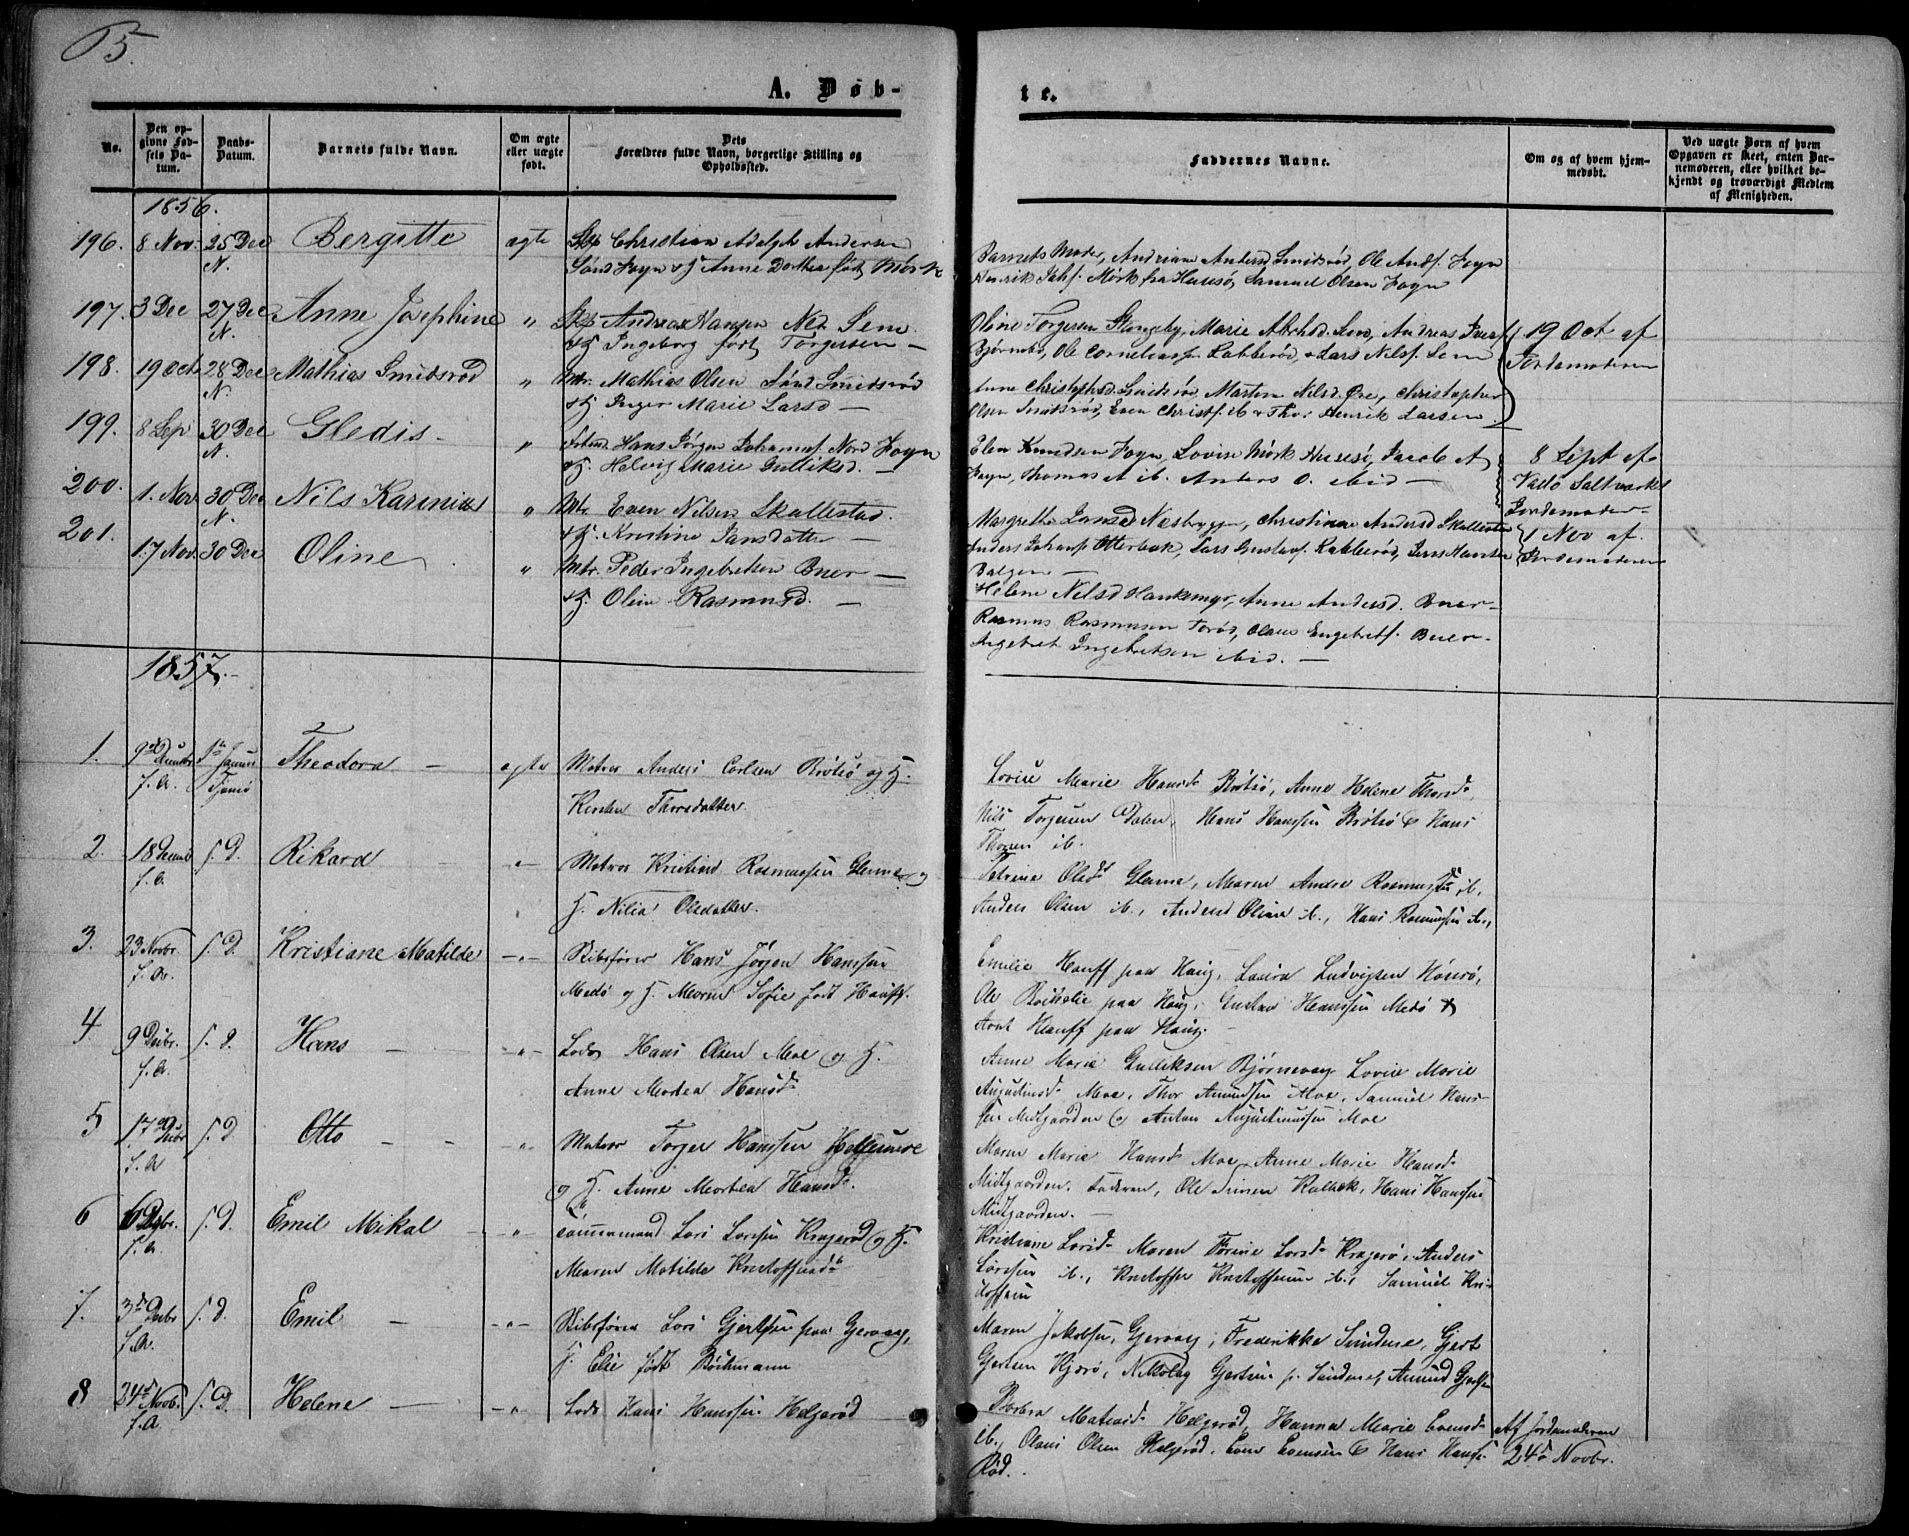 65.
A. Døb-
te.
No.
Den op-
givne Fød-
sels Da-
tum.
Daabs-
Datum.
Barnets fulde Navn.
Om ægte
eller uægte
født.
Dets
Forældres fulde Navn, borgerlige Stilling og
Opholdssted.
Faddernes Navne.
Om og af hvem hjem-
medøbt.
Ved uægte Børn af hvem
Opgaven er skeet, enten Bar-
nemoderen, eller hvilket be-
kjendt og troværdigt Medlem
af Menigheden.
1856.
196. 8 Nov. 25 Dec Bergitte ægte Christian Adolph Andersen
N. Sønd Fogn & H Anne Dorthea født Mørk
Barnets Moder, Andriane Andersd Smidsrød, Ole Andf. Fogn
Henrik Mørk fra Huusø, Samuel Olsen Fogn
197. 3 Dec 27 Dec Anne Josephine " Andreas Hansen Ned Sem
N. & H Ingeborg født Torgersen —
Oline Torgersen Stangeby, Marie Abrhd. Sem, Andreas
Bjørnebo, Ole Labberød, & Lars Nilsf. Sem
198. 19 Oct 28 Dec Mathias Smidsrød " Mtr. Mathias Olsen Sønd Smidsrød
N. & H. Inger Marie Larsd —
Anne Christophd. Smidsrød, Marten Nilsd Øre, Christopher
Olsen Smidsrød, Even Christf. ib & Thor Henrik Larsen
19 Oct af
Jordemoderen
199. 8 Sep 30 Dec Gledis. " Hans Jørgen Johannesf. Nord Fogn
N. & H. Helvig Marie Gulliksd. —
Elen Knudsen Fogn, Lovise Mørk Huusø, Jacob A
Fogn, Thomas A ib. Anders O. ibid —
8 Sept af
Vallø Saltværks
Jordemoder
200. 1. Nov 30 Dec Nils Karinius " Mtr Even Nilsen Skallestad.
N. & H. Kristine Jansdatter —
Margrethe Nesbryggen, Christine Andersd Skallestad
Anders Johansf Otterbæk, Lars Gustavf. Rabberød, Jens Hansen
Bolgen —
1 Nov af
Jordemoderen
201. 17 Nov. 30 Dec Oline " Mtr. Peder Ingebretsen Buer —
& H. Olein Rasmusd. —
Helene Nilsd Haukemyr, Anne Andersd. Buer —
Rasmus Rasmussen Torød, Olaus Engebretf. Buer —
Ingebret Ingebretsen ibid. —
1857.
1. 9de Decembr 1ste Januar Theodora — ægte Matros Anders Carlsen Brøtsø og H.
f. A. Tjømø Kirsten Thorsdatter
Lovise Marie Hansd Brøtsø, Anne Helene Thorsd.
Nils Torgersen Dalen, Hans Hanssen Brøtsø & Hans
Thorsen ib.
2. 18 Decemb s. D. Rikard — " — Matros Kristian Rasmussen Glenne og
f. A. H. Nilia Olsdatter.
Petrine Olsd Glenne, Maren Andrea Rasmusd ib,
Anders Olsen ib., Anders Olsen ib., Hans Rasmussen ib.,
3. 23 Novbr. s. D. Kristiane Matilde — " — Skibsfører Hans Jørgen Hanssen
f. A. Medø og H. Maren Sofie født Hauff.
Emilie Hauff paa Haug, Laura Ludvigsen Husø,
Ole paa Haug, Gustav Hanssen Medø &
Arnt Hauff paa Haug. —
4 9 Decbr. s. D. Hans — — " — Lods Hans Olsen Moe og H.
f. A. Anne Martea Hansd
Anne Marie Gulliksen Bjørnevaag Lovise Marie
Augustinusd Moe, Thor Amundsen Moe, Samuel Hans-
sen Midtgaarden & Anton Augustinussen Moe
5 17de Decbr s. D. Otto — — — " — Matros Torger Hanssen
f. A og H. Anne Martea Hansd.
Maren Marie Hansd Moe, Anne Marie Hansd
Midtgaarden, Faderen, Ole Simen Holbek, Hans Hanssen
Midtgaarden. —
6 6 Decbr. s. D. Emil Mikal — — " — Tømmermand Lars Larssen Kragerød og H.
f. A Maren Matilde Kristoffersd
Kristiane Larsd Maren Torine Larsd Kragerø, Anders
Larssen ib., Kristoffer Kristoffersen ib., Samuel Kri-
stoffersen
7. 3de Decbr s. D. Emil — — " — Skibsfører Lars Gjertsen paa Gjervaag,
f. A. H. Elise født Bøchmann
Maren Jakobsen Gjervaag, Frederikke Gjert
Gjertsen Hjørø, Nikolay Gjertsen p. Sunden og Amund Gjertsen
8 24de Novb. s. D. Helene — — " — Lods Hans Hanssen Helgerød
f. A
Barbra Matiasd Helgerød, Hanna Marie Evensd
ib., Olaus Olsen Helgerød, Even Evensen & Hans Hansf.
Rød.
Af Jordemoderen
24de Novbr.